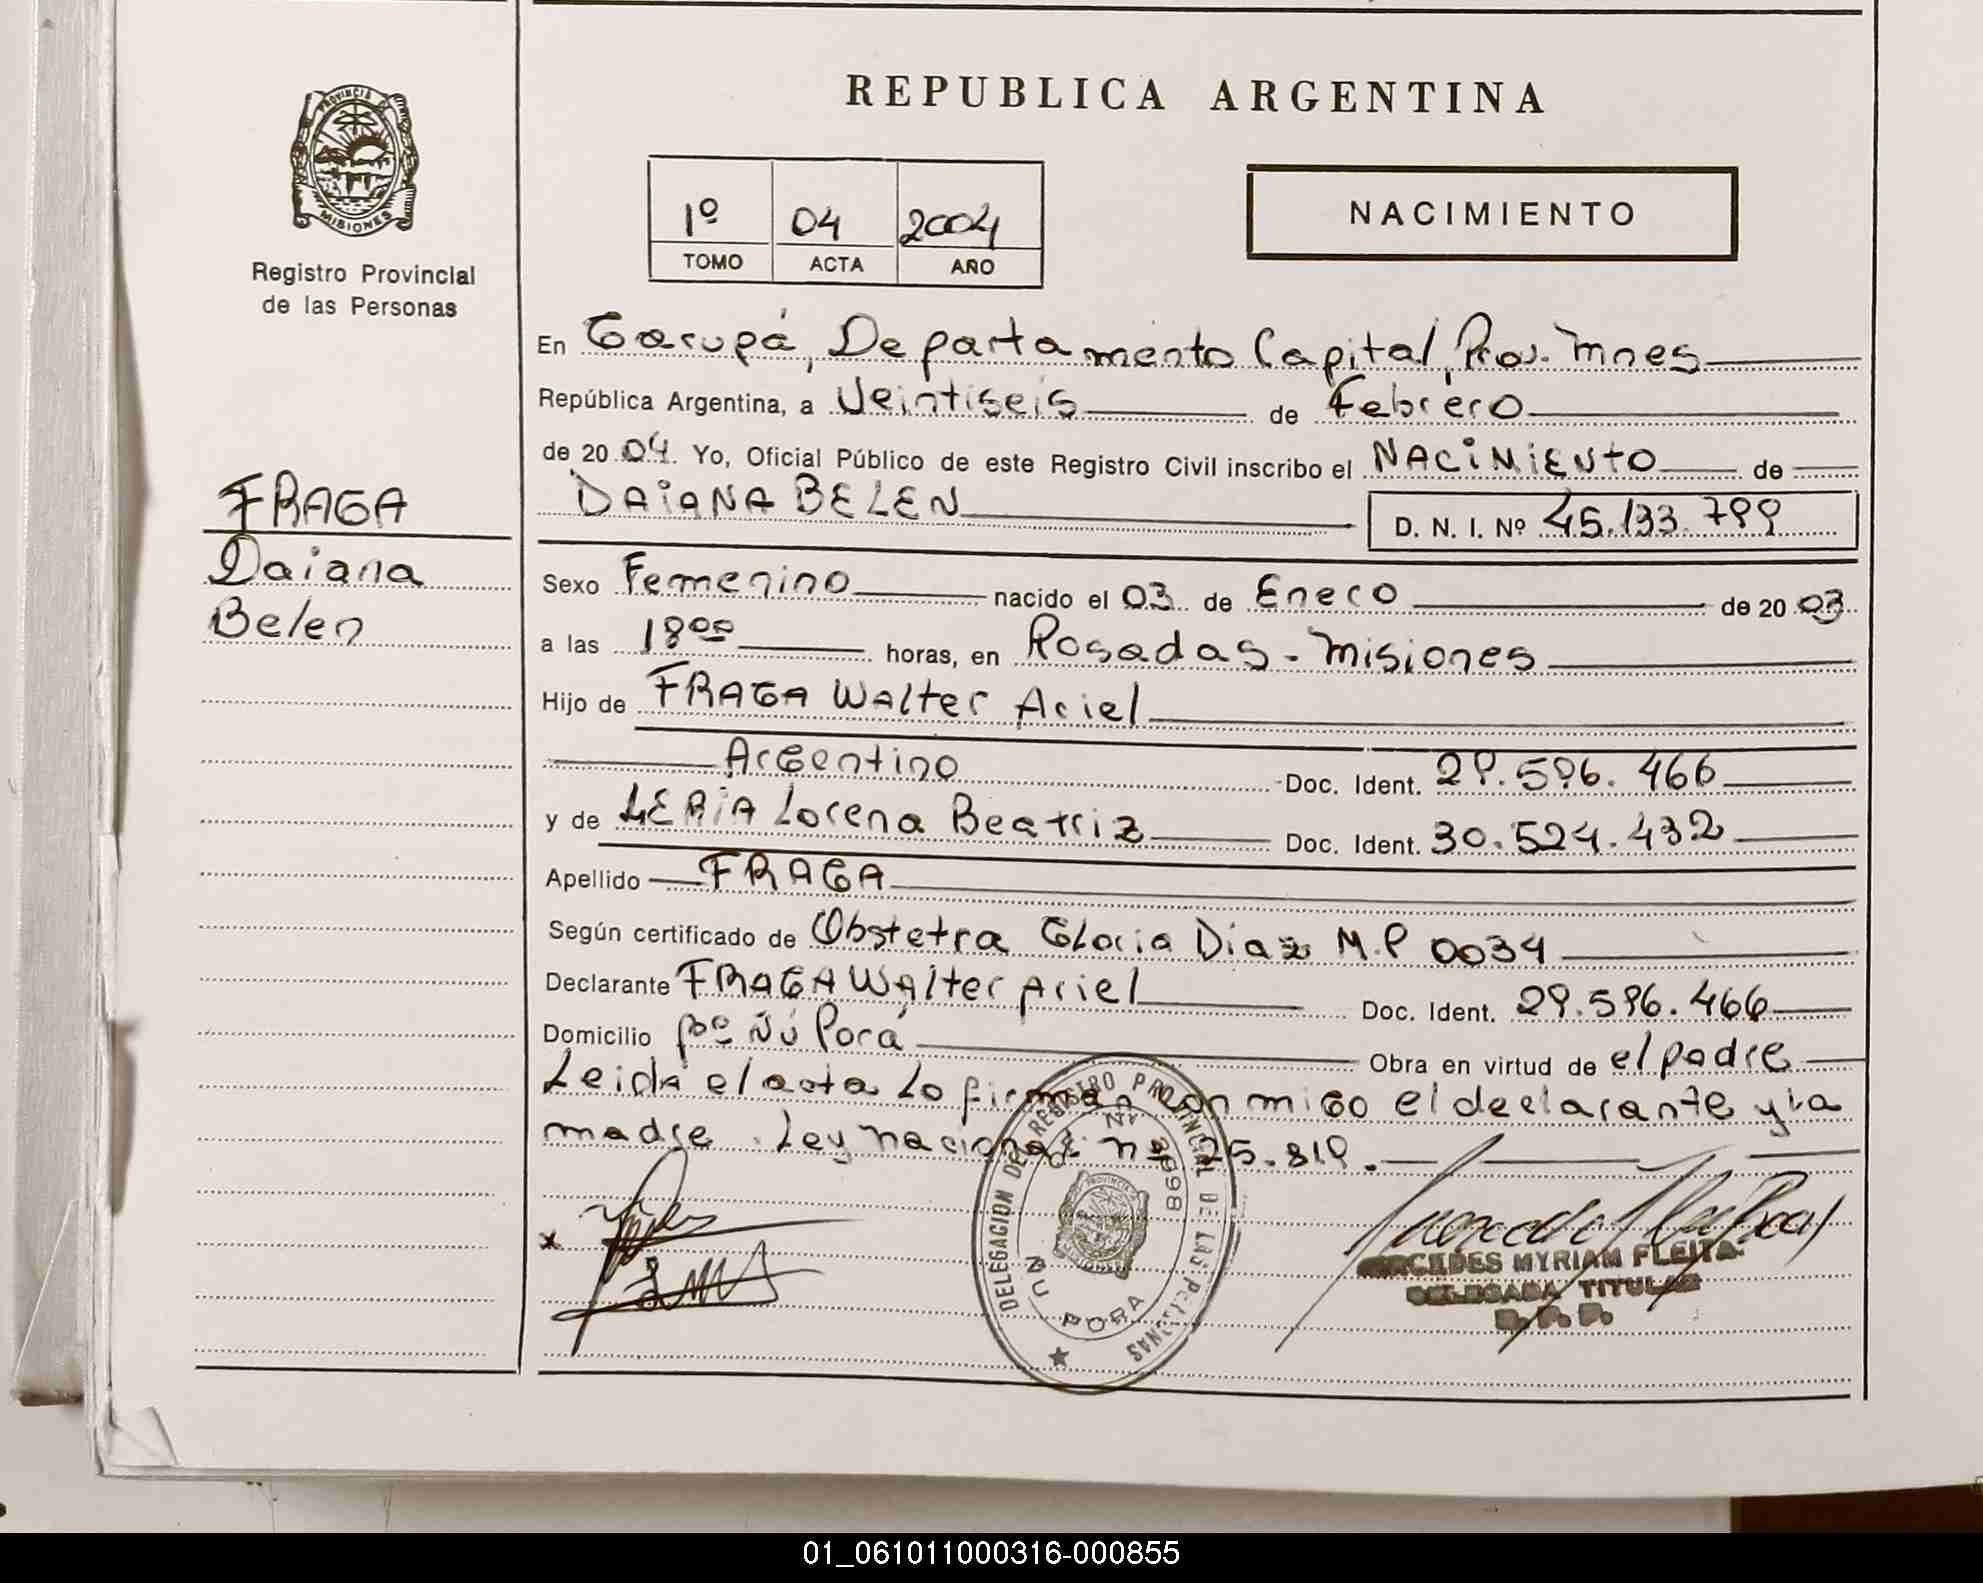 PROVINCIA DE
MISIONES
Registro Provincial
de las Personas
FRAGA
Daiana
Belen
REPUBLICA ARGENTINA
1º 04 2004
TOMO ACTA AÑO
NACIMIENTO
En Garupá, Departamento Capital, Prov. Mnes
República Argentina, a Veintiseis de Febrero
de 2004. Yo, Oficial Público de este Registro Civil inscribo el NACIMIENTO de
DAIANA BELEN D. N. I. Nº 45.133.799
Sexo Femenino nacido el 03 de Enero de 2003
a las 18ºº horas, en Posadas - Misiones
Hijo de FRAGA Walter Ariel
Argentino Doc. Ident. 29.596.466
y de LERIA Lorena Beatriz Doc. Ident. 30.524.432
Apellido FRAGA
Según certificado de Obstetra Gloria Diaz M.P 0034
Declarante FRAGA Walter Ariel Doc. Ident. 29.596.466
Domicilio Bº Ñú Porá Obra en virtud de el padre
Leida el acta Lo firman con migo el declarante y la
madre. Ley nacional nº 25.819.
DELEGACION DEL REGISTRO PROVINCIAL DE LAS PERSONAS
ÑU PORA
MERCEDES MYRIAM FLEITA
DELEGADA TITULAR
R. P. P.
01_061011000316-000855